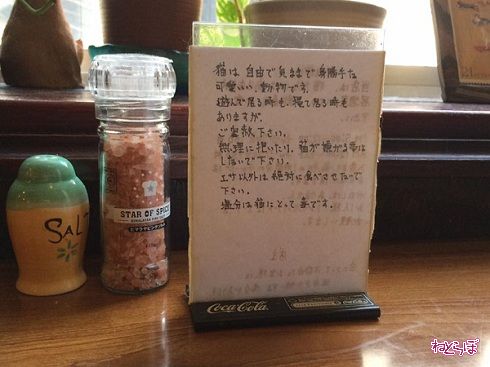 猫は自由で気ままで身勝手な
可愛いい動物です。
遊んで居る時も、寝て居る時も
ありますが、
ご容赦下さい。
無理に抱いたり、猫が嫌がる事は
しないで下さい。
エサ以外は絶対に食べさせないで
下さい。
塩分は猫にとって毒です。
SALT
STAR OF SPICE
Coca-Cola
ねとらぼ